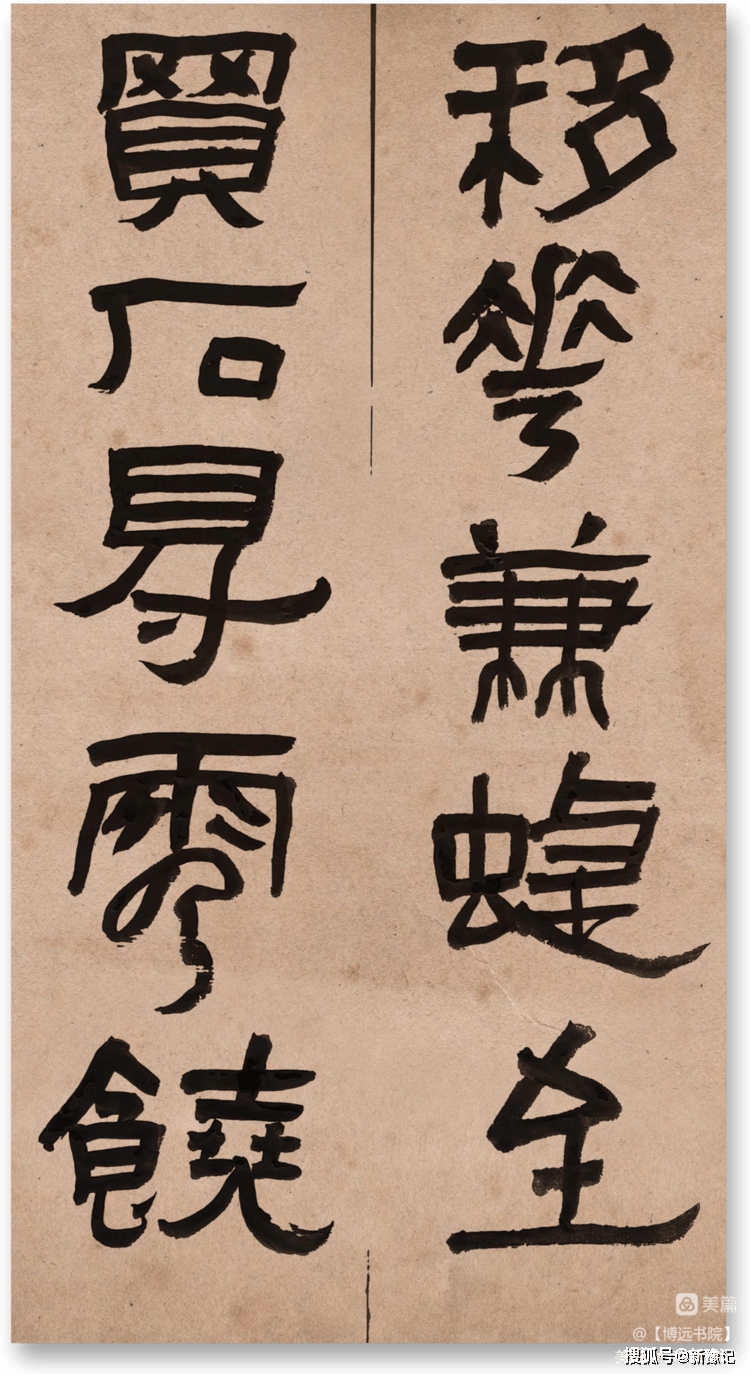 移華兼蜨至
買石得雲饒
美篇
@【博远书院】
搜狐号@新豫记